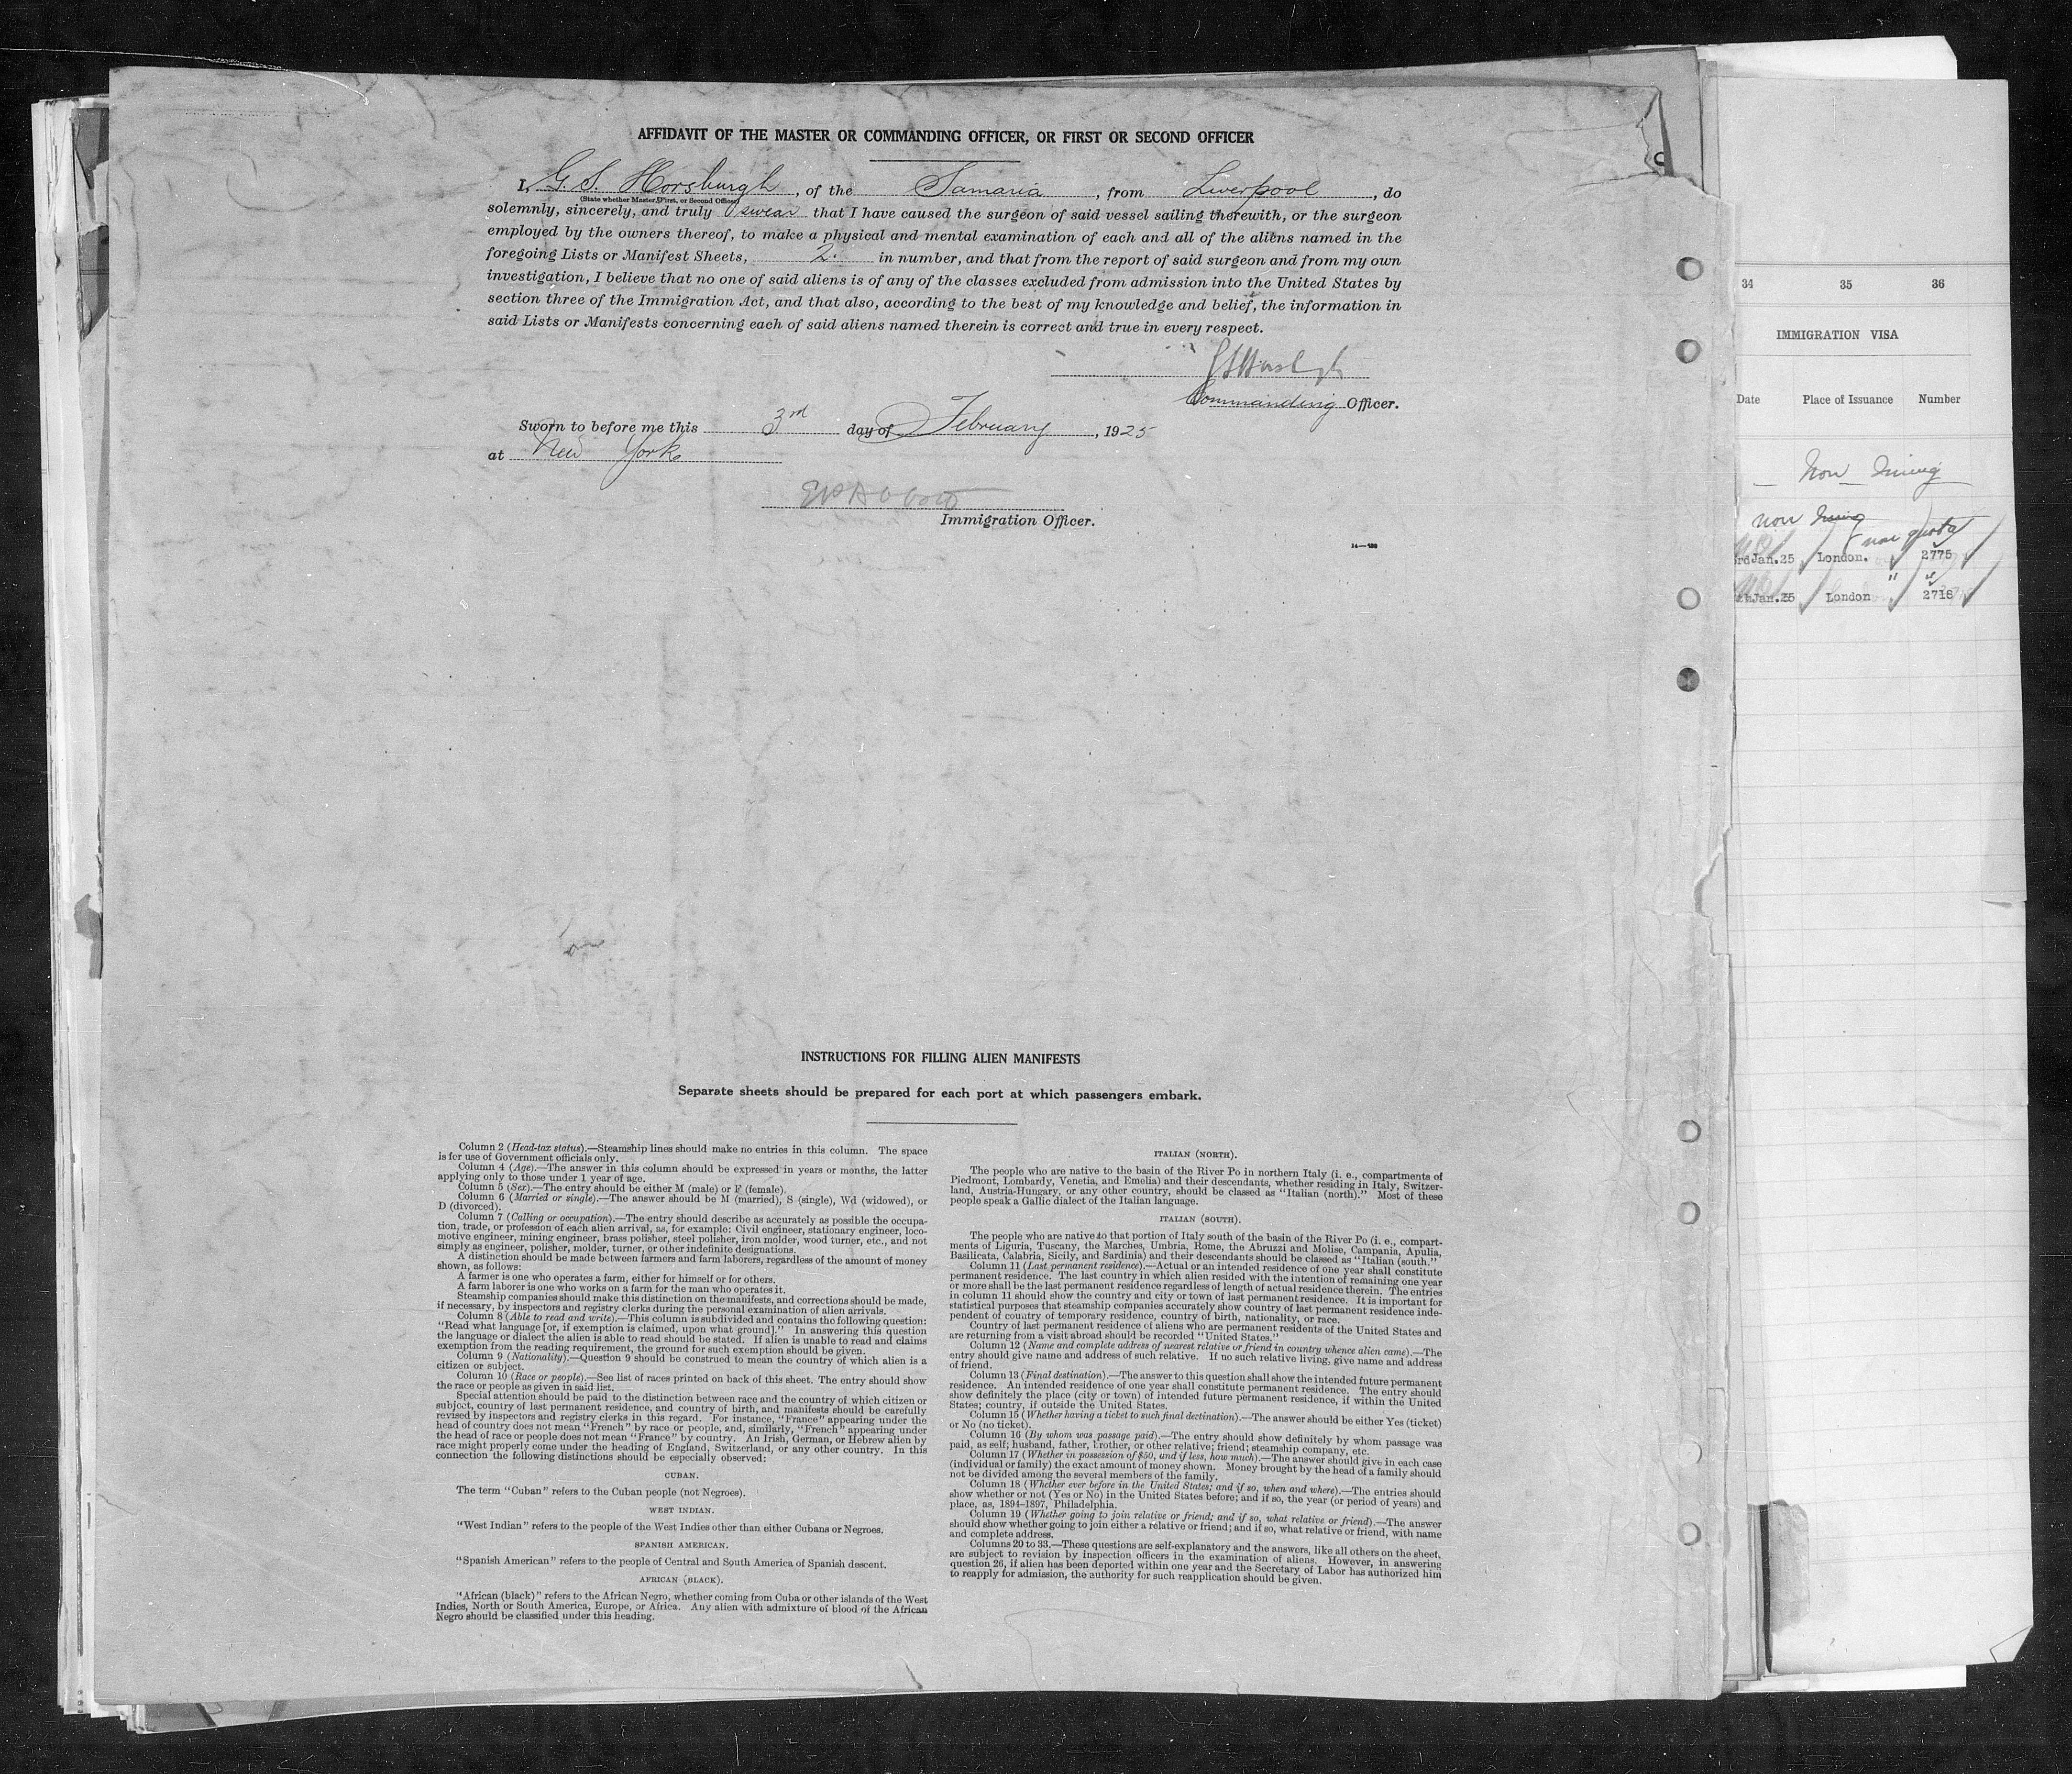 AFFIDAVIT OF THE MASTER OR COMMANDING OFFICER, OR FIRST OR SECOND OFFICER
I, G. S. Horsburgh, of the Samaria, from Liverpool, do
(State whether Master, First, or Second Officer)
solemnly, sincerely, and truly swear that I have caused the surgeon of said vessel sailing therewith, or the surgeon
employed by the owners thereof, to make a physical and mental examination of each and all of the aliens named in the
foregoing Lists or Manifest Sheets, 2. in number, and that from the report of said surgeon and from my own
investigation, I believe that no one of said aliens is of any of the classes excluded from admission into the United States by
section three of the Immigration Act, and that also, according to the best of my knowledge and belief, the information in
said Lists or Manifests concerning each of said aliens named therein is correct and true in every respect.
Commanding Officer.
Sworn to before me this 3rd day of February, 1925
at New York
Immigration Officer.
INSTRUCTIONS FOR FILLING ALIEN MANIFESTS
Separate sheets should be prepared for each port at which passengers embark.
Column 2 (Head-tax status).—Steamship lines should make no entries in this column. The space
is for use of Government officials only.
Column 4 (Age).—The answer in this column should be expressed in years or months, the latter
applying only to those under 1 year of age.
Column 5 (Sex).—The entry should be either M (male) or F (female).
Column 6 (Married or single).—The answer should be M (married), S (single), Wd (widowed), or
D (divorced).
Column 7 (Calling or occupation).—The entry should describe as accurately as possible the occupa-
tion, trade, or profession of each alien arrival, as, for example: Civil engineer, stationary engineer, loco-
motive engineer, mining engineer, brass polisher, steel polisher, iron molder, wood turner, etc., and not
simply as engineer, polisher, molder, turner, or other indefinite designations.
A distinction should be made between farmers and farm laborers, regardless of the amount of money
shown, as follows:
A farmer is one who operates a farm, either for himself or for others.
A farm laborer is one who works on a farm for the man who operates it.
Steamship companies should make this distinction on the manifests, and corrections should be made,
if necessary, by inspectors and registry clerks during the personal examination of alien arrivals.
Column 8 (Able to read and write).—This column is subdivided and contains the following question:
"Read what language [or, if exemption is claimed, upon what ground]." In answering this question
the language or dialect the alien is able to read should be stated. If alien is unable to read and claims
exemption from the reading requirement, the ground for such exemption should be given.
Column 9 (Nationality).—Question 9 should be construed to mean the country of which alien is a
citizen or subject.
Column 10 (Race or people).—See list of races printed on back of this sheet. The entry should show
the race or people as given in said list.
Special attention should be paid to the distinction between race and the country of which citizen or
subject, country of last permanent residence, and country of birth, and manifests should be carefully
revised by inspectors and registry clerks in this regard. For instance, "France" appearing under the
head of country does not mean "French" by race or people, and, similarly, "French" appearing under
the head of race or people does not mean "France" by country. An Irish, German, or Hebrew alien by
race might properly come under the heading of England, Switzerland, or any other country. In this
connection the following distinctions should be especially observed:
CUBAN.
The term "Cuban" refers to the Cuban people (not Negroes).
WEST INDIAN.
"West Indian" refers to the people of the West Indies other than either Cubans or Negroes.
SPANISH AMERICAN.
"Spanish American" refers to the people of Central and South America of Spanish descent.
AFRICAN (BLACK).
"African (black)" refers to the African Negro, whether coming from Cuba or other islands of the West
Indies, North or South America, Europe, or Africa. Any alien with admixture of blood of the African
Negro should be classified under this heading.
ITALIAN (NORTH).
The people who are native to the basin of the River Po in northern Italy (i. e., compartments of
Piedmont, Lombardy, Venetia, and Emelia) and their descendants, whether residing in Italy, Switzer-
land, Austria-Hungary, or any other country, should be classed as "Italian (north)." Most of these
people speak a Gallic dialect of the Italian language.
ITALIAN (SOUTH).
The people who are native to that portion of Italy south of the basin of the River Po (i. e., compart-
ments of Liguria, Tuscany, the Marches, Umbria, Rome, the Abruzzi and Molise, Campania, Apulia,
Basilicata, Calabria, Sicily, and Sardinia) and their descendants should be classed as "Italian (south."
Column 11 (Last permanent residence).—Actual or an intended residence of one year shall constitute
permanent residence. The last country in which alien resided with the intention of remaining one year
or more shall be the last permanent residence regardless of length of actual residence therein. The entries
in column 11 should show the country and city or town of last permanent residence. It is important for
statistical purposes that steamship companies accurately show country of last permanent residence inde-
pendent of country of temporary residence, country of birth, nationality, or race.
Country of last permanent residence of aliens who are permanent residents of the United States and
are returning from a visit abroad should be recorded "United States."
Column 12 (Name and complete address of nearest relative or friend in country whence alien came).—The
entry should give name and address of such relative. If no such relative living, give name and address
of friend.
Column 13 (Final destination).—The answer to this question shall show the intended future permanent
residence. An intended residence of one year shall constitute permanent residence. The entry should
show definitely the place (city or town) of intended future permanent residence, if within the United
States; country, if outside the United States.
Column 15 (Whether having a ticket to such final destination).—The answer should be either Yes (ticket)
or No (no ticket).
Column 16 (By whom was passage paid).—The entry should show definitely by whom passage was
paid, as self; husband, father, brother, or other relative; friend; steamship company, etc.
Column 17 (Whether in possession of $50, and if less, how much).—The answer should give in each case
(individual or family) the exact amount of money shown. Money brought by the head of a family should
not be divided among the several members of the family.
Column 18 (Whether ever before in the United States; and if so, when and where).—The entries should
show whether or not (Yes or No) in the United States before; and if so, the year (or period of years) and
place, as, 1894-1897, Philadelphia.
Column 19 (Whether going to join relative or friend; and if so, what relative or friend).—The answer
should show whether going to join either a relative or friend; and if so, what relative or friend, with name
and complete address.
Columns 20 to 33.—These questions are self-explanatory and the answers, like all others on the sheet,
are subject to revision by inspection officers in the examination of aliens. However, in answering
question 26, if alien has been deported within one year and the Secretary of Labor has authorized him
to reapply for admission, the authority for such reapplication should be given.
34 35 36
IMMIGRATION VISA
Date Place of Issuance Number
Non
non
non quota
Jan.25 London. 2775
Jan.25 London " 2718